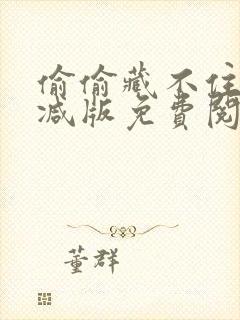 偷偷藏不住
减版免费阅
董群